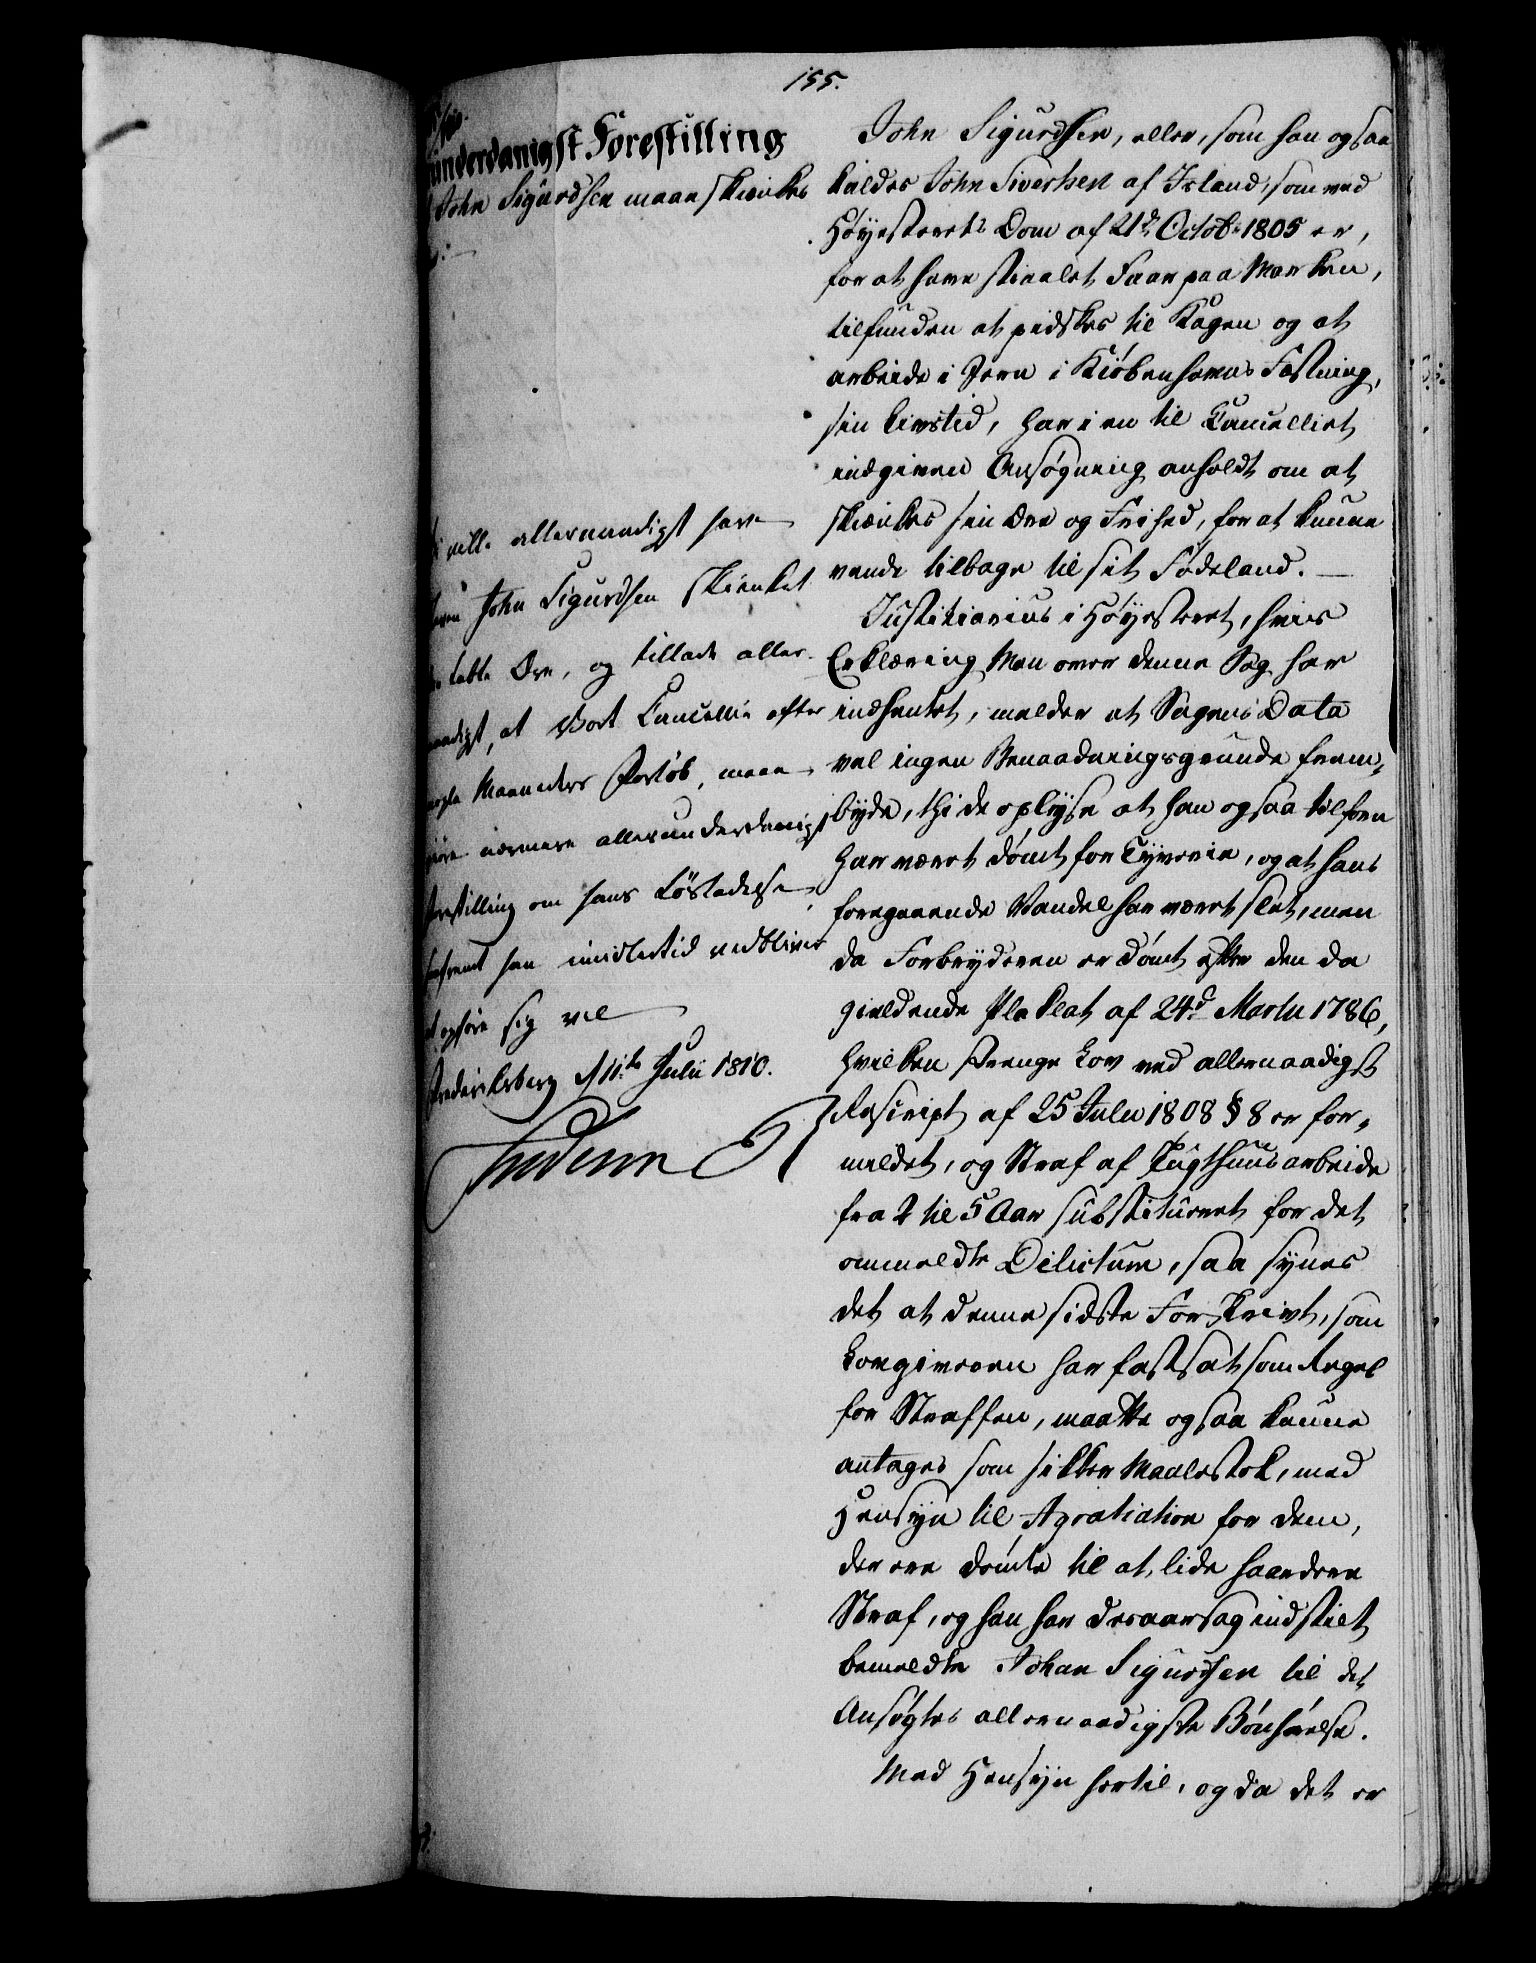 155.
underdanigst Forestilling
John Sigurdsen maae skienkes
Vi ville allernaadigst have
John Sigurdsen skienket
tabte Ære, og tillade aller-
naadigst, at Vort Cancellie efter
nogle Maaneders Forløb, maae
giøre nærmere allerunderdanigst
Forestilling om hans Løsladelse
saafremt han imidlertid vedbliver
at opføre sig vel
Frederiksberg d 11te Julii 1810.
Frederik R
John Sigurdsen, eller, som han ogsaa
kaldes John Sivertsen af Island, som ved
Høyesterets Dom af 21de Octobr 1805 er,
for at have stiaalet Faar paa Marken,
tilfunden at pidskes til Kagen og at
arbeide i Jern i Kiøbenhavns Fæstning,
sin Livstid, har i en til Cancelliet
indgiven Ansøgning anholdt om at
skienkes sin Ære og Frihed, for at kunne
vende tilbage til sit Fødeland. —
Justitiarius i Høyesteret, hvis
Erklæring Man over denne Sag har
indhentet, melder at Sagens Data
vel ingen Benaadningsgrunde frem-
byde, thi de oplyse at han ogsaa tilforn
har været dømt for Tyverie, og at hans
foregaaende Vandel har været slet, men
da Forbryderen er dømt efter den da
gieldende Plakat af 24d Martii 1786,
hvilken strenge Lov ved allernaadigst
Rescript af 25 Julii 1808 § 8 er for-
mildet, og Straf af Tugthuusarbeide
fra 2 til 5 Aar substitueret for det
ommeldte Delictum, saa synes
det at denne sidste Forskrivt, som
Lovgiveren har fastsat som Regel
for Straffen, maatte ogsaa kunne
antages som sikker Maalestok, med
Hensyn til Agratiation for dem,
der ere dømte til at lide haardere
Straf, og han har desaarsag indstilt
bemeldte Johan Sigurdsen til det
Ansøgtes allernaadigste Bønhørelse.
Med Hensyn hertil, og da det er